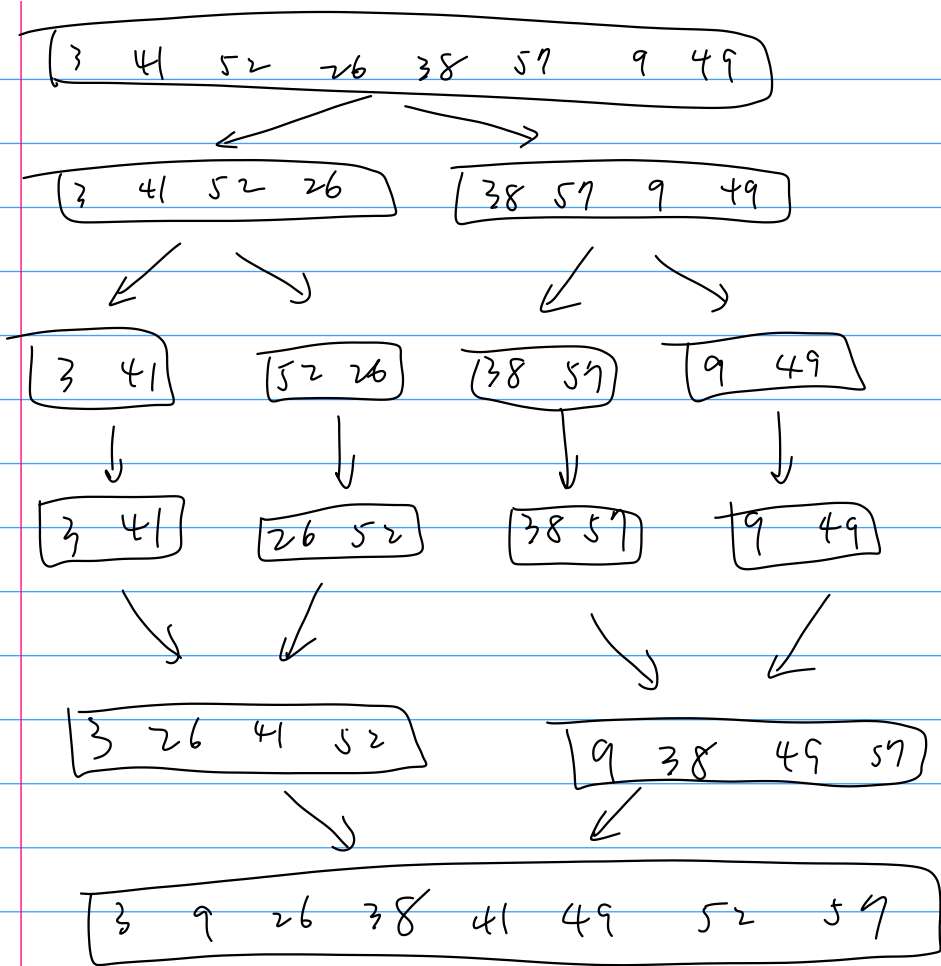 3 41 52 26 38 57 9 49
3 41 52 26 38 57 9 49
3 41 52 26 38 57 9 49
3 41 26 52 38 57 9 49
3 26 41 52 9 38 49 57
3 9 26 38 41 49 52 57